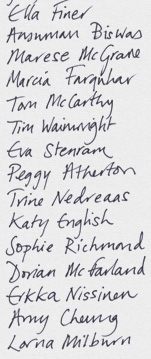 Ella Finer
Ansuman Biswas
Marese McGrane
Marcia Farquhar
Tom McCarthy
Tim Wainwright
Eva Stenram
Peggy Atherton
Trine Nedreaas
Katy English
Sophie Richmond
Dorian McFarland
Erkka Nissinen
Amy Cheung
Lorna Milburn